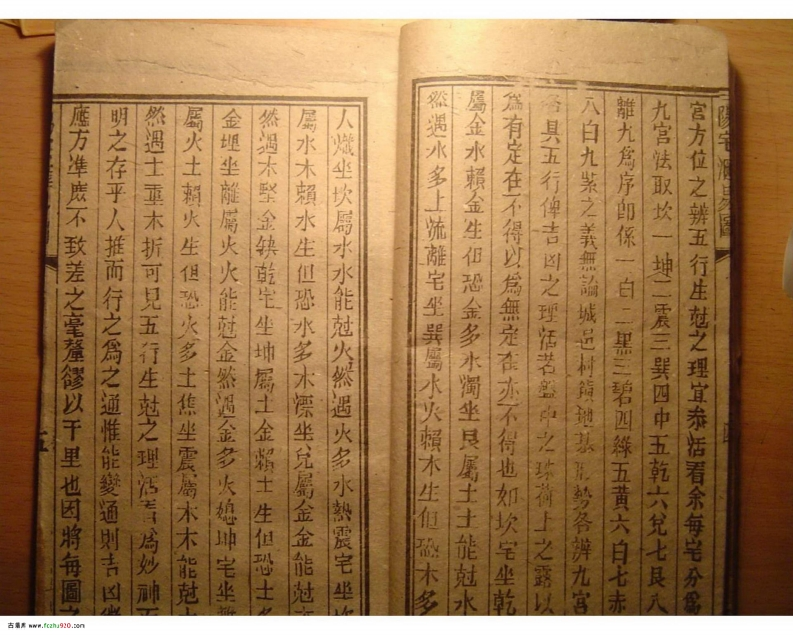 宮方位之辨五行生尅之理宜叅活看余每宅分爲
九宮法取坎一坤二震三巽四中五乾六兌七艮八
離九爲序卽係一白二黑三碧四綠五黃六白七赤
八白九紫之義無論城邑村鎭地基形勢各辨九宮
各具五行俾吉凶之理活若盤中之珠荷上之露以
爲有定在不得以爲無定在亦不得也如坎宅坐乾
屬金水賴金生但恐金多水濁坐艮屬土土能尅水
然遇水多土流離宅坐巽屬木火賴木生但恐木多
人熾坐坎屬水水能尅火然遇火多水熱震宅坐坎
屬水木賴水生但恐水多木漂坐兌屬金金能尅
然遇木堅金缺乾宅坐坤屬土金賴土生但恐土多
金埋坐離屬火火能尅金然遇金多火熄坤宅坐離
屬火土賴火生但恐火多土焦坐震屬木木能尅土
然遇土重木折可見五行生尅之理活看爲妙神而
明之存乎人推而行之爲之通惟能變通則吉凶
應方準庶不致差之毫釐繆以千里也因將每圖之
五
古籍州 www.fczhu920.com